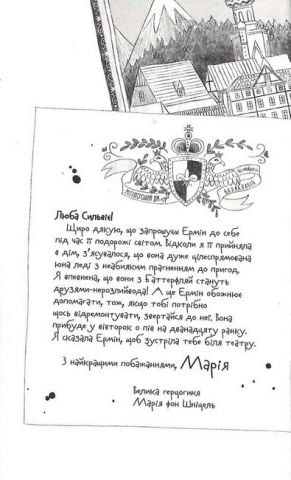 Люба Сильвіє!
Щиро дякую, що запрошуєш Ермін до себе
під час її подорожі світом. Відколи я її прийняла
в дім, з'ясувалося, що вона дуже цілеспрямована
юна леді з неабияким прагненням до пригод.
Я впевнена, що вони з Баттерфляй стануть
друзями-нерозлийвода! А ще Ермін обожнює
допомагати, тож, якщо тобі потрібно
щось відремонтувати, звертайся до неї. Вона
прибуде у вівторок о пів на дванадцяту ранку.
Я сказала Ермін, щоб зустріла тебе біля театру.
З найкращими побажаннями, Марія
Велика герцогиня
Марія фон Шніцель